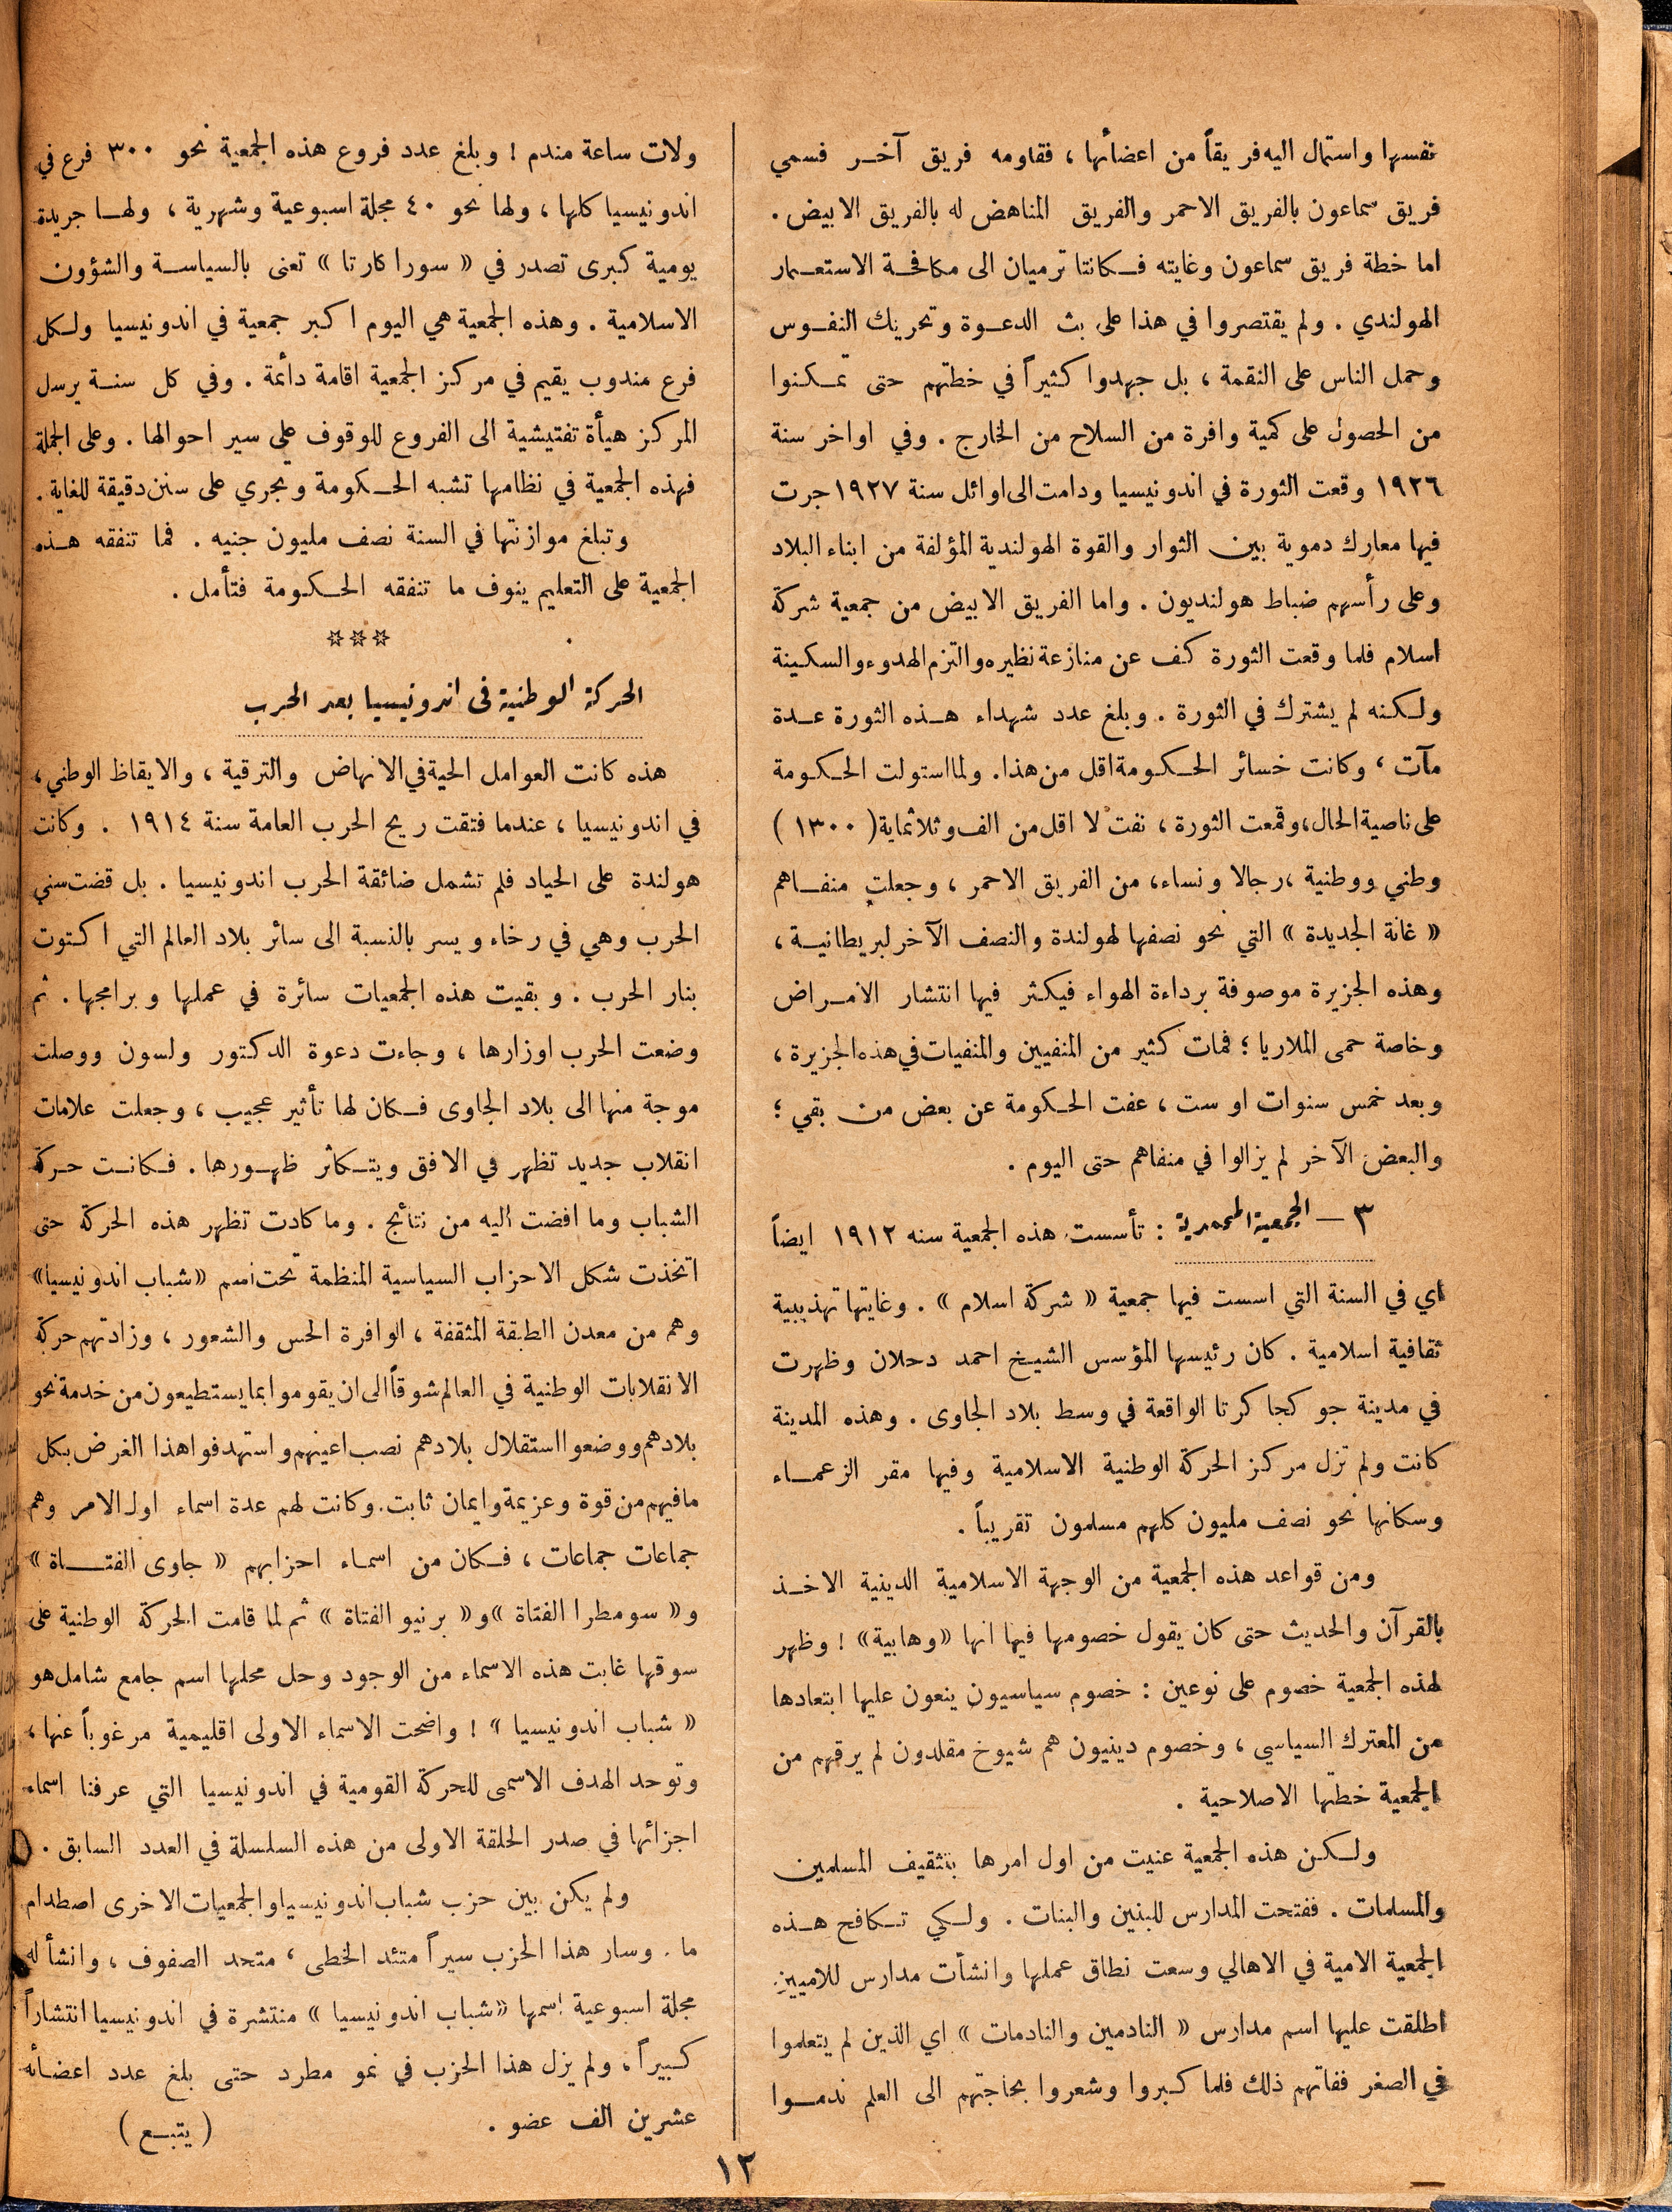 نفسها واستمال اليه فريقاً من اعضائها ، فقاومه فريق آخر فسمي
فريق سماعون بالفريق الاحمر والفريق المناهض له بالفريق الابيض .
اما خطة فريق سماعون وغايته فكانتا ترميان الى مكافحة الاستعمار
الهولندي . ولم يقتصروا في هذا على بث الدعوة وتحريك النفوس
وحمل الناس على النقمة ، بل جهدوا كثيراً في خطتهم حتى تمكنوا
من الحصول على كمية وافرة من السلاح من الخارج . وفي اواخر سنة
١٩٢٦ وقعت الثورة في اندونيسيا ودامت الى اوائل سنة ١٩٢٧ جرت
فيها معارك دموية بين الثوار والقوة الهولندية المؤلفة من ابناء البلاد
وعلى رأسهم ضباط هولنديون . واما الفريق الابيض من جمعية شركة
اسلام فلما وقعت الثورة كف عن منازعة نظيره والتزم الهدوء والسكينة
ولكنه لم يشترك في الثورة . وبلغ عدد شهداء هذه الثورة عدة
مآت ، وكانت خسائر الحكومة اقل من هذا . ولما استولت الحكومة
على ناصية الحال ، وقمعت الثورة ، نفت لا اقل من الف وثلاثماية ( ١٣٠٠ )
وطني ووطنية ، رجالا ونساء ، من الفريق الاحمر ، وجعلت منفاهم
« غانة الجديدة » التي نحو نصفها لهولندة والنصف الآخر لبريطانية ،
وهذه الجزيرة موصوفة برداءة الهواء فيكثر فيها انتشار الامراض
وخاصة حمى الملاريا ؛ فمات كثير من المنفيين والمنفيات في هذه الجزيرة ،
وبعد خمس سنوات او ست ، عفت الحكومة عن بعض من بقي ؛
والبعض الآخر لم يزالوا في منفاهم حتى اليوم .
٣ — الجمعية المحمدية : تأسست هذه الجمعية سنه ١٩١٢ ايضاً
اي في السنة التي اسست فيها جمعية « شركة اسلام » . وغايتها تهذيبية
ثقافية اسلامية . كان رئيسها المؤسس الشيخ احمد دحلان وظهرت
في مدينة جو كجا كرتا الواقعة في وسط بلاد الجاوى . وهذه المدينة
كانت ولم تزل مركز الحركة الوطنية الاسلامية وفيها مقر الزعماء
وسكانها نحو نصف مليون كلهم مسلمون تقريباً .
ومن قواعد هذه الجمعية من الوجهة الاسلامية الدينية الاخذ
بالقرآن والحديث حتى كان يقول خصومها فيها انها « وهابية » ! وظهر
لهذه الجمعية خصوم على نوعين : خصوم سياسيون ينعون عليها ابتعادها
من المعترك السياسي ، وخصوم دينيون هم شيوخ مقلدون لم يرقهم من
الجمعية خطتها الاصلاحية .
ولكن هذه الجمعية عنيت من اول امرها بتثقيف المسلمين
والمسلمات . ففتحت المدارس للبنين والبنات . ولكي تكافح هذه
الجمعية الامية في الاهالي وسعت نطاق عملها وانشأت مدارس للاميين
اطلقت عليها اسم مدارس « النادمين والنادمات » اي الذين لم يتعلموا
في الصغر ففاتهم ذلك فلما كبروا وشعروا بحاجتهم الى العلم ندموا
ولات ساعة مندم ! وبلغ عدد فروع هذه الجمعية نحو ٣٠٠ فرع في
اندونيسيا كلها ، ولها نحو ٤٠ مجلة اسبوعية وشهرية ، ولها جريدة
يومية كبرى تصدر في « سورا كارتا » تعنى بالسياسة والشؤون
الاسلامية . وهذه الجمعية هي اليوم اكبر جمعية في اندونيسيا ولكل
فرع مندوب يقيم في مركز الجمعية اقامة دائمة . وفي كل سنة يرسل
المركز هيأة تفتيشية الى الفروع للوقوف على سير احوالها . وعلى الجملة
فهذه الجمعية في نظامها تشبه الحكومة وتجري على سنن دقيقة للغاية .
وتبلغ موازنتها في السنة نصف مليون جنيه . فما تنفقه هذه
الجمعية على التعليم ينوف ما تنفقه الحكومة فتأمل .
***
الحركة الوطنية في اندونيسيا بعد الحرب
هذه كانت العوامل الحية في الانهاض والترقية ، والايقاظ الوطني ،
في اندونيسيا ، عندما فتقت ريح الحرب العامة سنة ١٩١٤ . وكانت
هولندة على الحياد فلم تشمل ضائقة الحرب اندونيسيا . بل قضت سني
الحرب وهي في رخاء ويسر بالنسبة الى سائر بلاد العالم التي اكتوت
بنار الحرب . وبقيت هذه الجمعيات سائرة في عملها وبرامجها . ثم
وضعت الحرب اوزارها ، وجاءت دعوة الدكتور ولسون ووصلت
موجة منها الى بلاد الجاوى فكان لها تأثير عجيب ، وجعلت علامات
انقلاب جديد تظهر في الافق ويتكاثر ظهورها . فكانت حركة
الشباب وما افضت اليه من نتائج . وما كادت تظهر هذه الحركة حتى
اتخذت شكل الاحزاب السياسية المنظمة تحت اسم « شباب اندونيسيا »
وهم من معدن الطبقة المثقفة ، الوافرة الحس والشعور ، وزادتهم حركة
الانقلابات الوطنية في العالم شوقاً الى ان يقوموا بما يستطيعون من خدمة نحو
بلادهم ووضعوا استقلال بلادهم نصب اعينهم واستهدفوا هذا الغرض بكل
ما فيهم من قوة وعزيمة وايمان ثابت . وكانت لهم عدة اسماء اول الامر وهم
جماعات جماعات ، فكان من اسماء احزابهم « جاوى الفتاة »
و« سومطرا الفتاة » و« برنيو الفتاة » ثم لما قامت الحركة الوطنية على
سوقها غابت هذه الاسماء من الوجود وحل محلها اسم جامع شامل هو
« شباب اندونيسيا » ! واضحت الاسماء الاولى اقليمية مرغوباً عنها ،
وتوحد الهدف الاسمى للحركة القومية في اندونيسيا التي عرفنا اسماء
اجزائها في صدر الحلقة الاولى من هذه السلسلة في العدد السابق .
ولم يكن بين حزب شباب اندونيسيا والجمعيات الاخرى اصطدام
ما . وسار هذا الحزب سيراً متئد الخطى ، متحد الصفوف ، وانشأ له
مجلة اسبوعية اسمها « شباب اندونيسيا » منتشرة في اندونيسيا انتشاراً
كبيراً ، ولم يزل هذا الحزب في نمو مطرد حتى بلغ عدد اعضائه
عشرين الف عضو . ( يتبع )
١٣